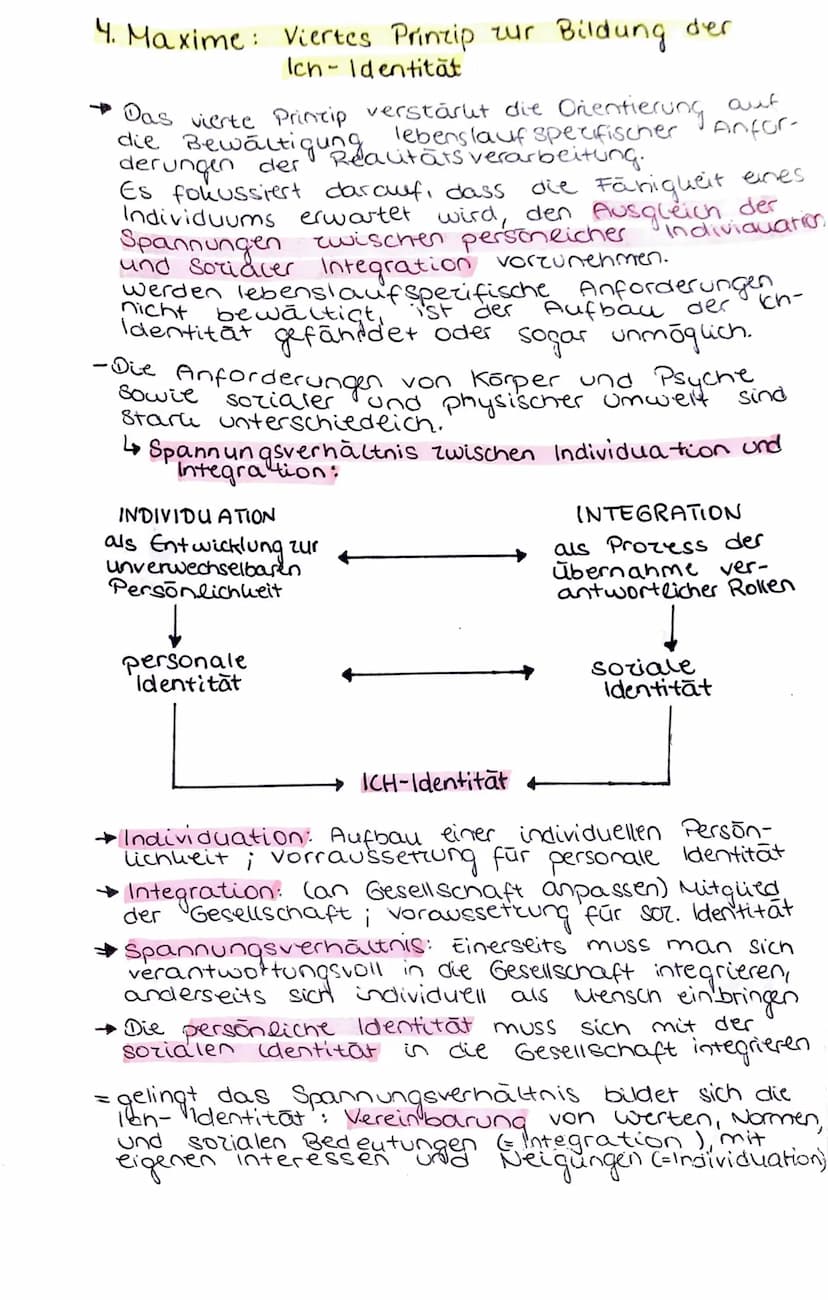 4. Maxime: Viertes Prinzip zur Bildung der
Ich-Identität
→ Das vierte Prinzip verstärkt die Orientierung auf
die Bewältigung lebenslaufspezifischer Anfor-
derungen der Realitätsverarbeitung.
Es fokussiert darauf, dass die Fähigkeit eines
Individuums erwartet wird, den Ausgleich der
Spannungen zwischen persönlicher Individuation
und Sozialer Integration vorzunehmen.
Werden lebenslaufspezifische Anforderungen
nicht bewältigt, ist der Aufbau der Ich-
Identität gefährdet oder sogar unmöglich.
- Die Anforderungen von Körper und Psyche
sowie sozialer und physischer Umwelt sind
stark unterschiedlich.
↳ Spannungsverhältnis zwischen Individuation und
Integration:
INDIVIDUATION
als Entwicklung zur
unverwechselbaren
Persönlichkeit
INTEGRATION
als Prozess der
Übernahme ver-
antwortlicher Rollen
personale
Identität
soziale
Identität
ICH-Identität
→ Individuation: Aufbau einer individuellen Persön-
lichkeit ; Vorraussetzung für personale Identität
→ Integration: (an Gesellschaft anpassen) Mitglied
der Gesellschaft ; Voraussetzung für soz. Identität
→ Spannungsverhältnis: Einerseits muss man sich
verantwortungsvoll in die Gesellschaft integrieren,
anderseits sich individuell als Mensch einbringen
→ Die persönliche Identität muss sich mit der
sozialen Identität in die Gesellschaft integrieren
= gelingt das Spannungsverhältnis bildet sich die
Ich-Identität : Vereinbarung von Werten, Normen,
und sozialen Bedeutungen (= Integration), mit
eigenen Interessen und Neigungen (=Individuation)